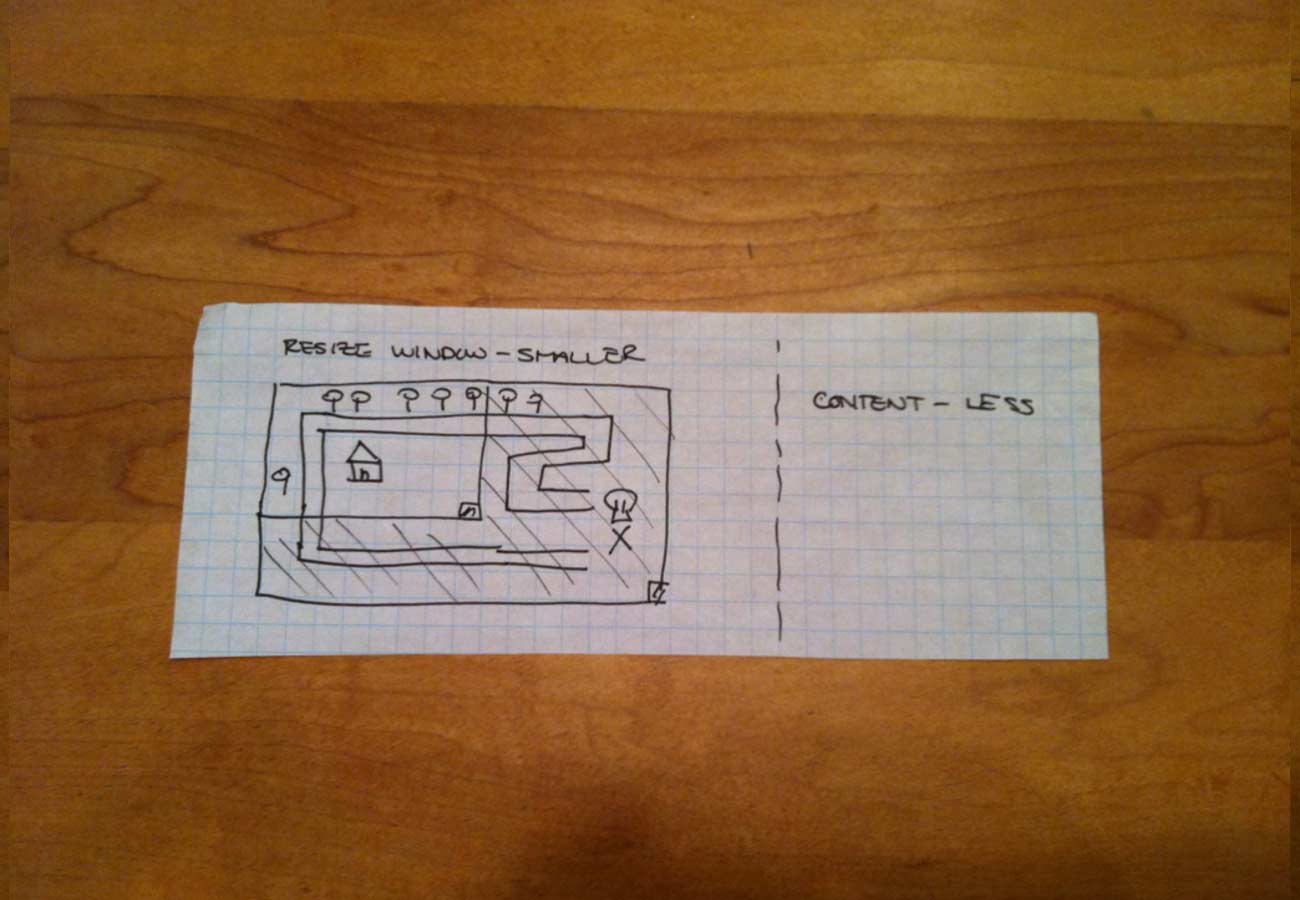 RESIZE WINDOW - SMALLER
CONTENT - LESS
X